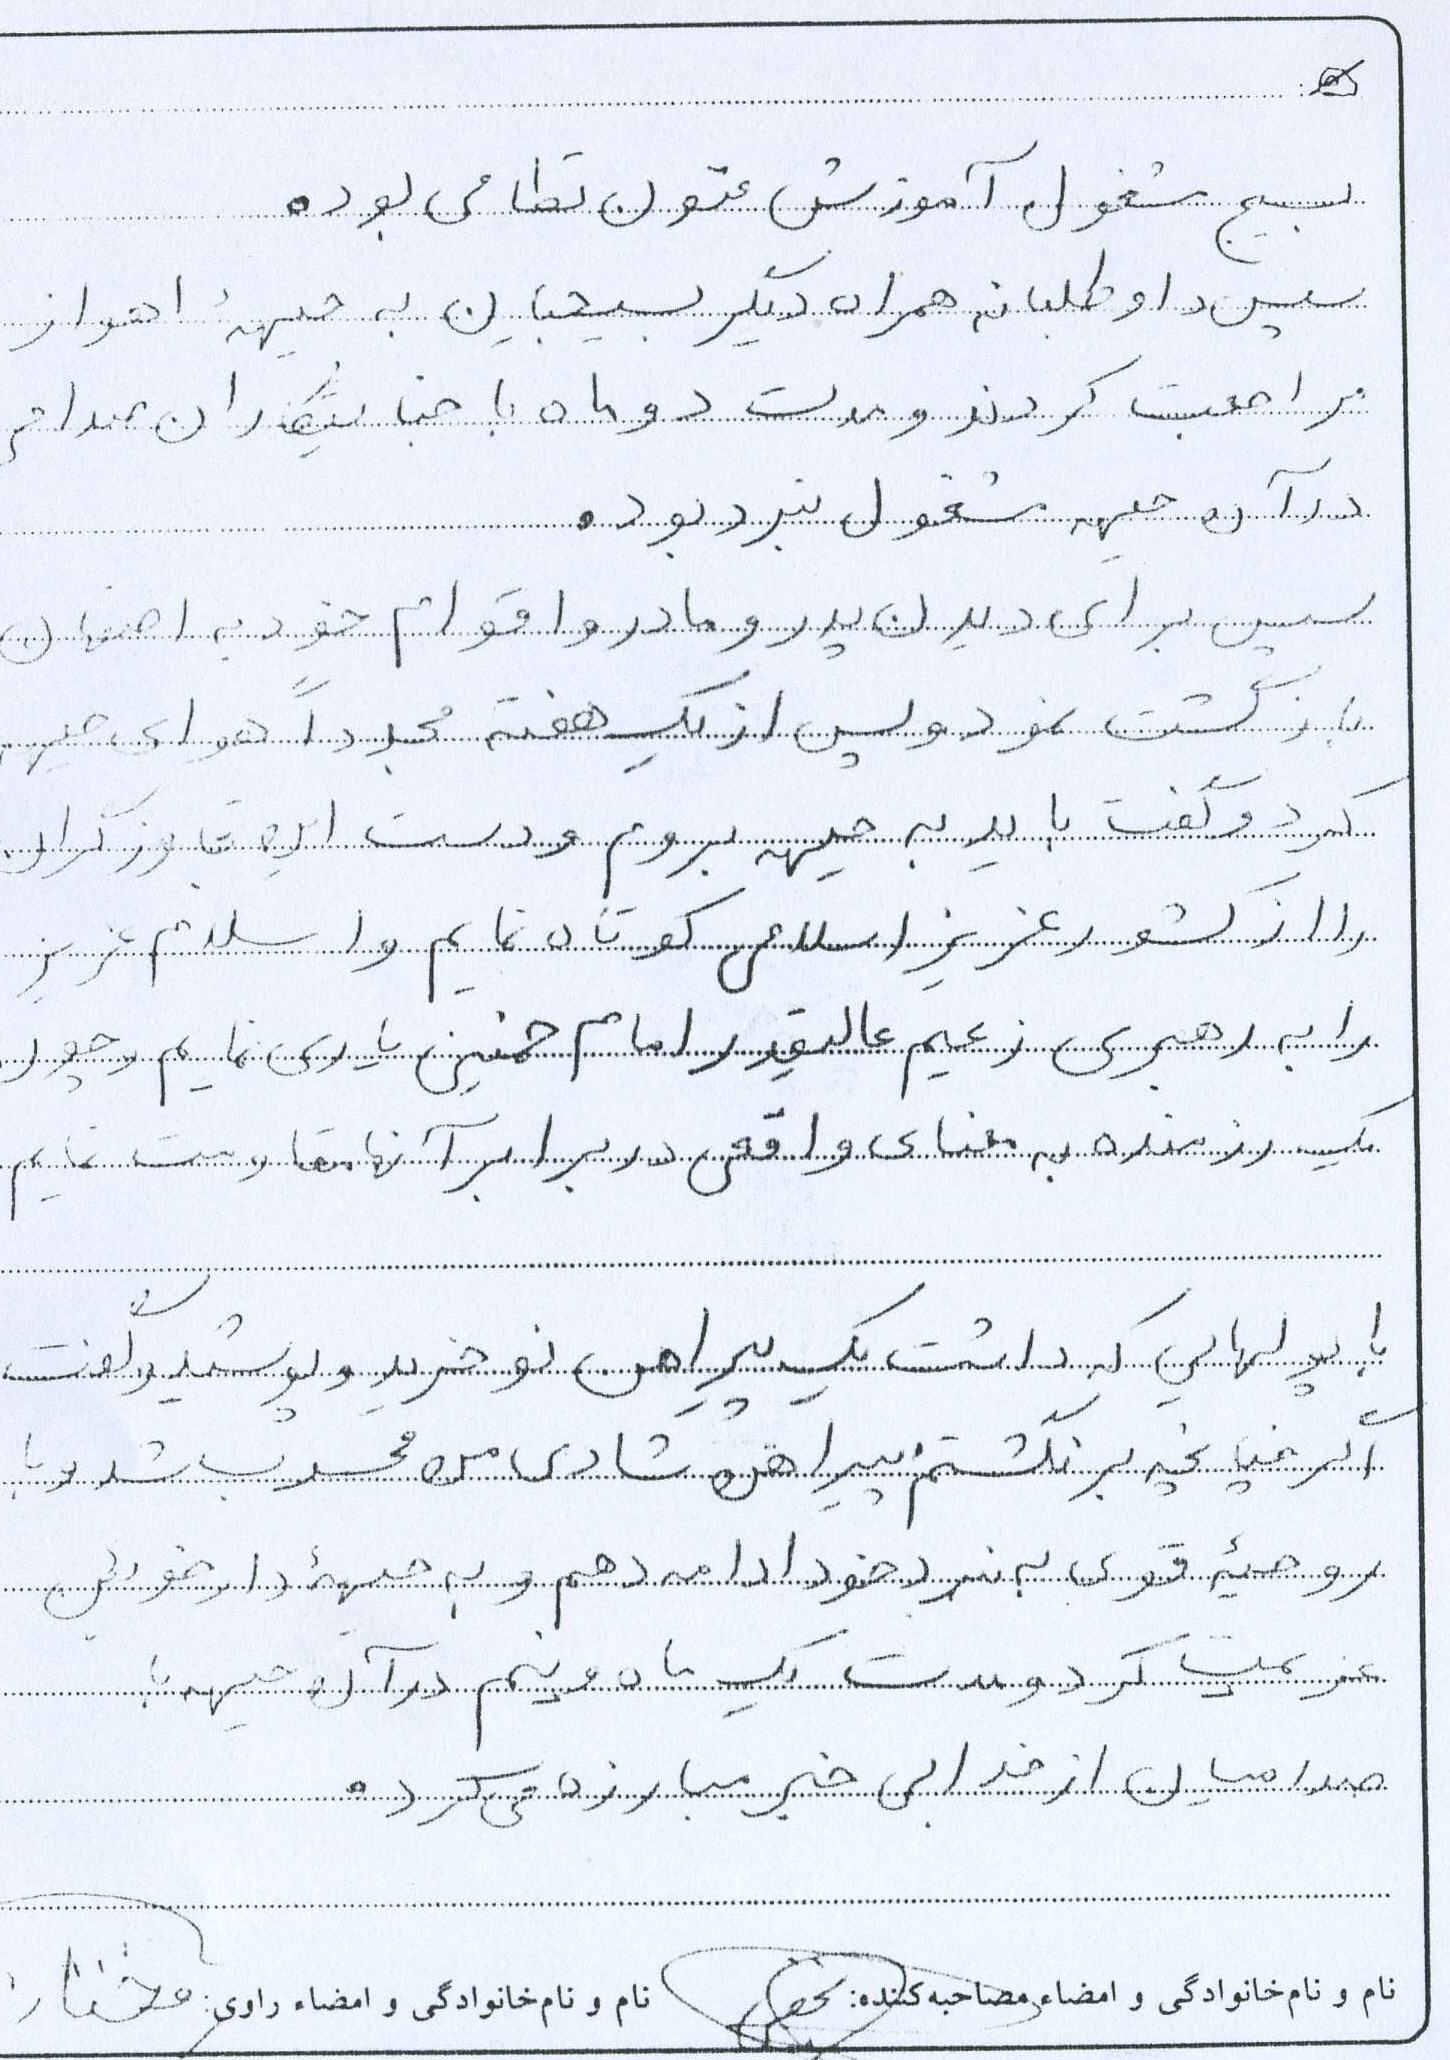 بسیج مشغول آموزش متون نظامی بوده
سپس داوطلبانه همراه دیگر بسیجیان به جبههٔ اهواز
مراجعت کردند و مدت دو ماه با جنایتکاران صدامی
در آن جبهه مشغول نبرد بوده
سپس برای دیدن پدر و مادر و اقوام خود به اصفهان
بازگشت نمود و پس از یک هفته مجدداً هوای جبهه
کرد و گفت باید به جبهه بروم و دست این تجاوزگران
را از کشور عزیز اسلامی کوتاه نمایم و اسلام عزیز
را به رهبری زعیم عالیقدر امام خمینی یاری نمایم و چون
یک رزمنده به معنای واقعی در برابر آنها مقاومت نمایم
با پولهایی که داشت یک پیراهن نو خرید و پوشید و گفت
اگر چنانچه برنگشتم پیراهن شادی من محسوب شد و با
روحیهٔ قوی به نبرد خود ادامه دهم و به جبههٔ دارخوین
عزیمت کرد و مدت یک ماه و نیم در آن جبهه با
صدامیان از خدا بی خبر مبارزه می کرد
نام و نام‌خانوادگی و امضاء مصاحبه‌کننده: نام و نام‌خانوادگی و امضاء راوی: